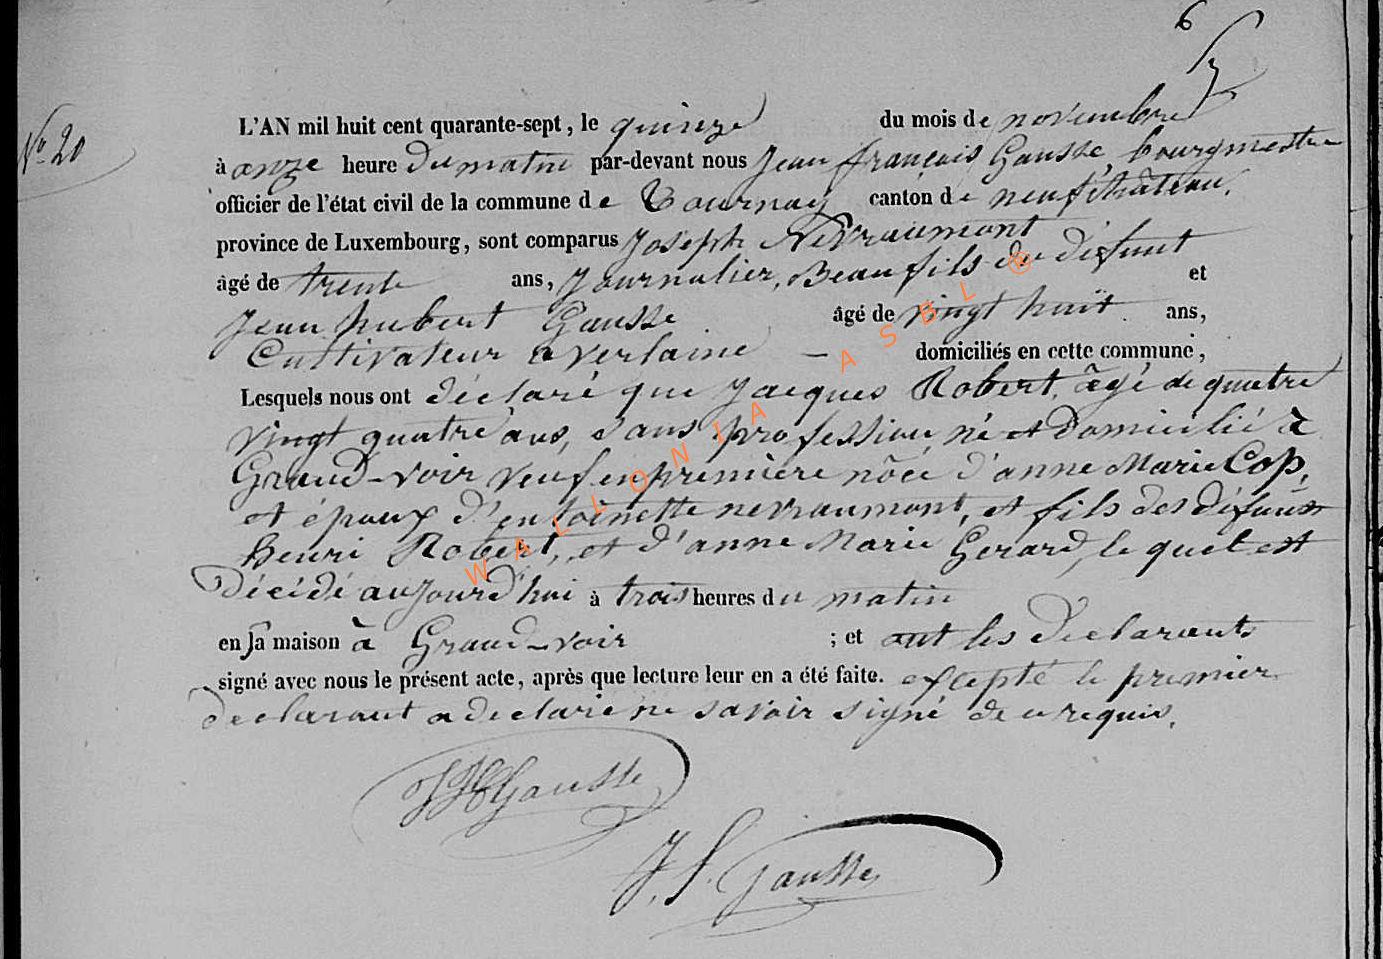 6
N° 20
L'AN mil huit cent quarante-sept, le quinze du mois de novembre
à onze heure du matin par-devant nous Jean françois Gausse, bourgmestre
officier de l'état civil de la commune de Tournay canton de neufchâteau.
province de Luxembourg, sont comparus Joseph Nevraumont
âgé de trente ans, Journalier, Beau fils du défunt et
Jean hubert Gausse âgé de vingt huit ans,
Cultivateur a verlaine — domiciliés en cette commune,
Lesquels nous ont déclaré que Jacques Robert, âgé de quatre
vingt quatre ans, sans profession né et domicilié à
Grand-voir veuf en première nôce d'anne Marie Cop,
et époux d'entoinette nevraumont, et fils des défunts
henri Robert, et d'anne Marie Gerard, le quel est
Décédé aujourd'hui à trois heures du matin
en sa maison à Grand-voir ; et ont les Declarants
signé avec nous le présent acte, après que lecture leur en a été faite. excepté le premier
declarant a declaré ne savoir signé de ce requis.
JHGausse
J. f. Gausse
WALLONIA ASBL ®